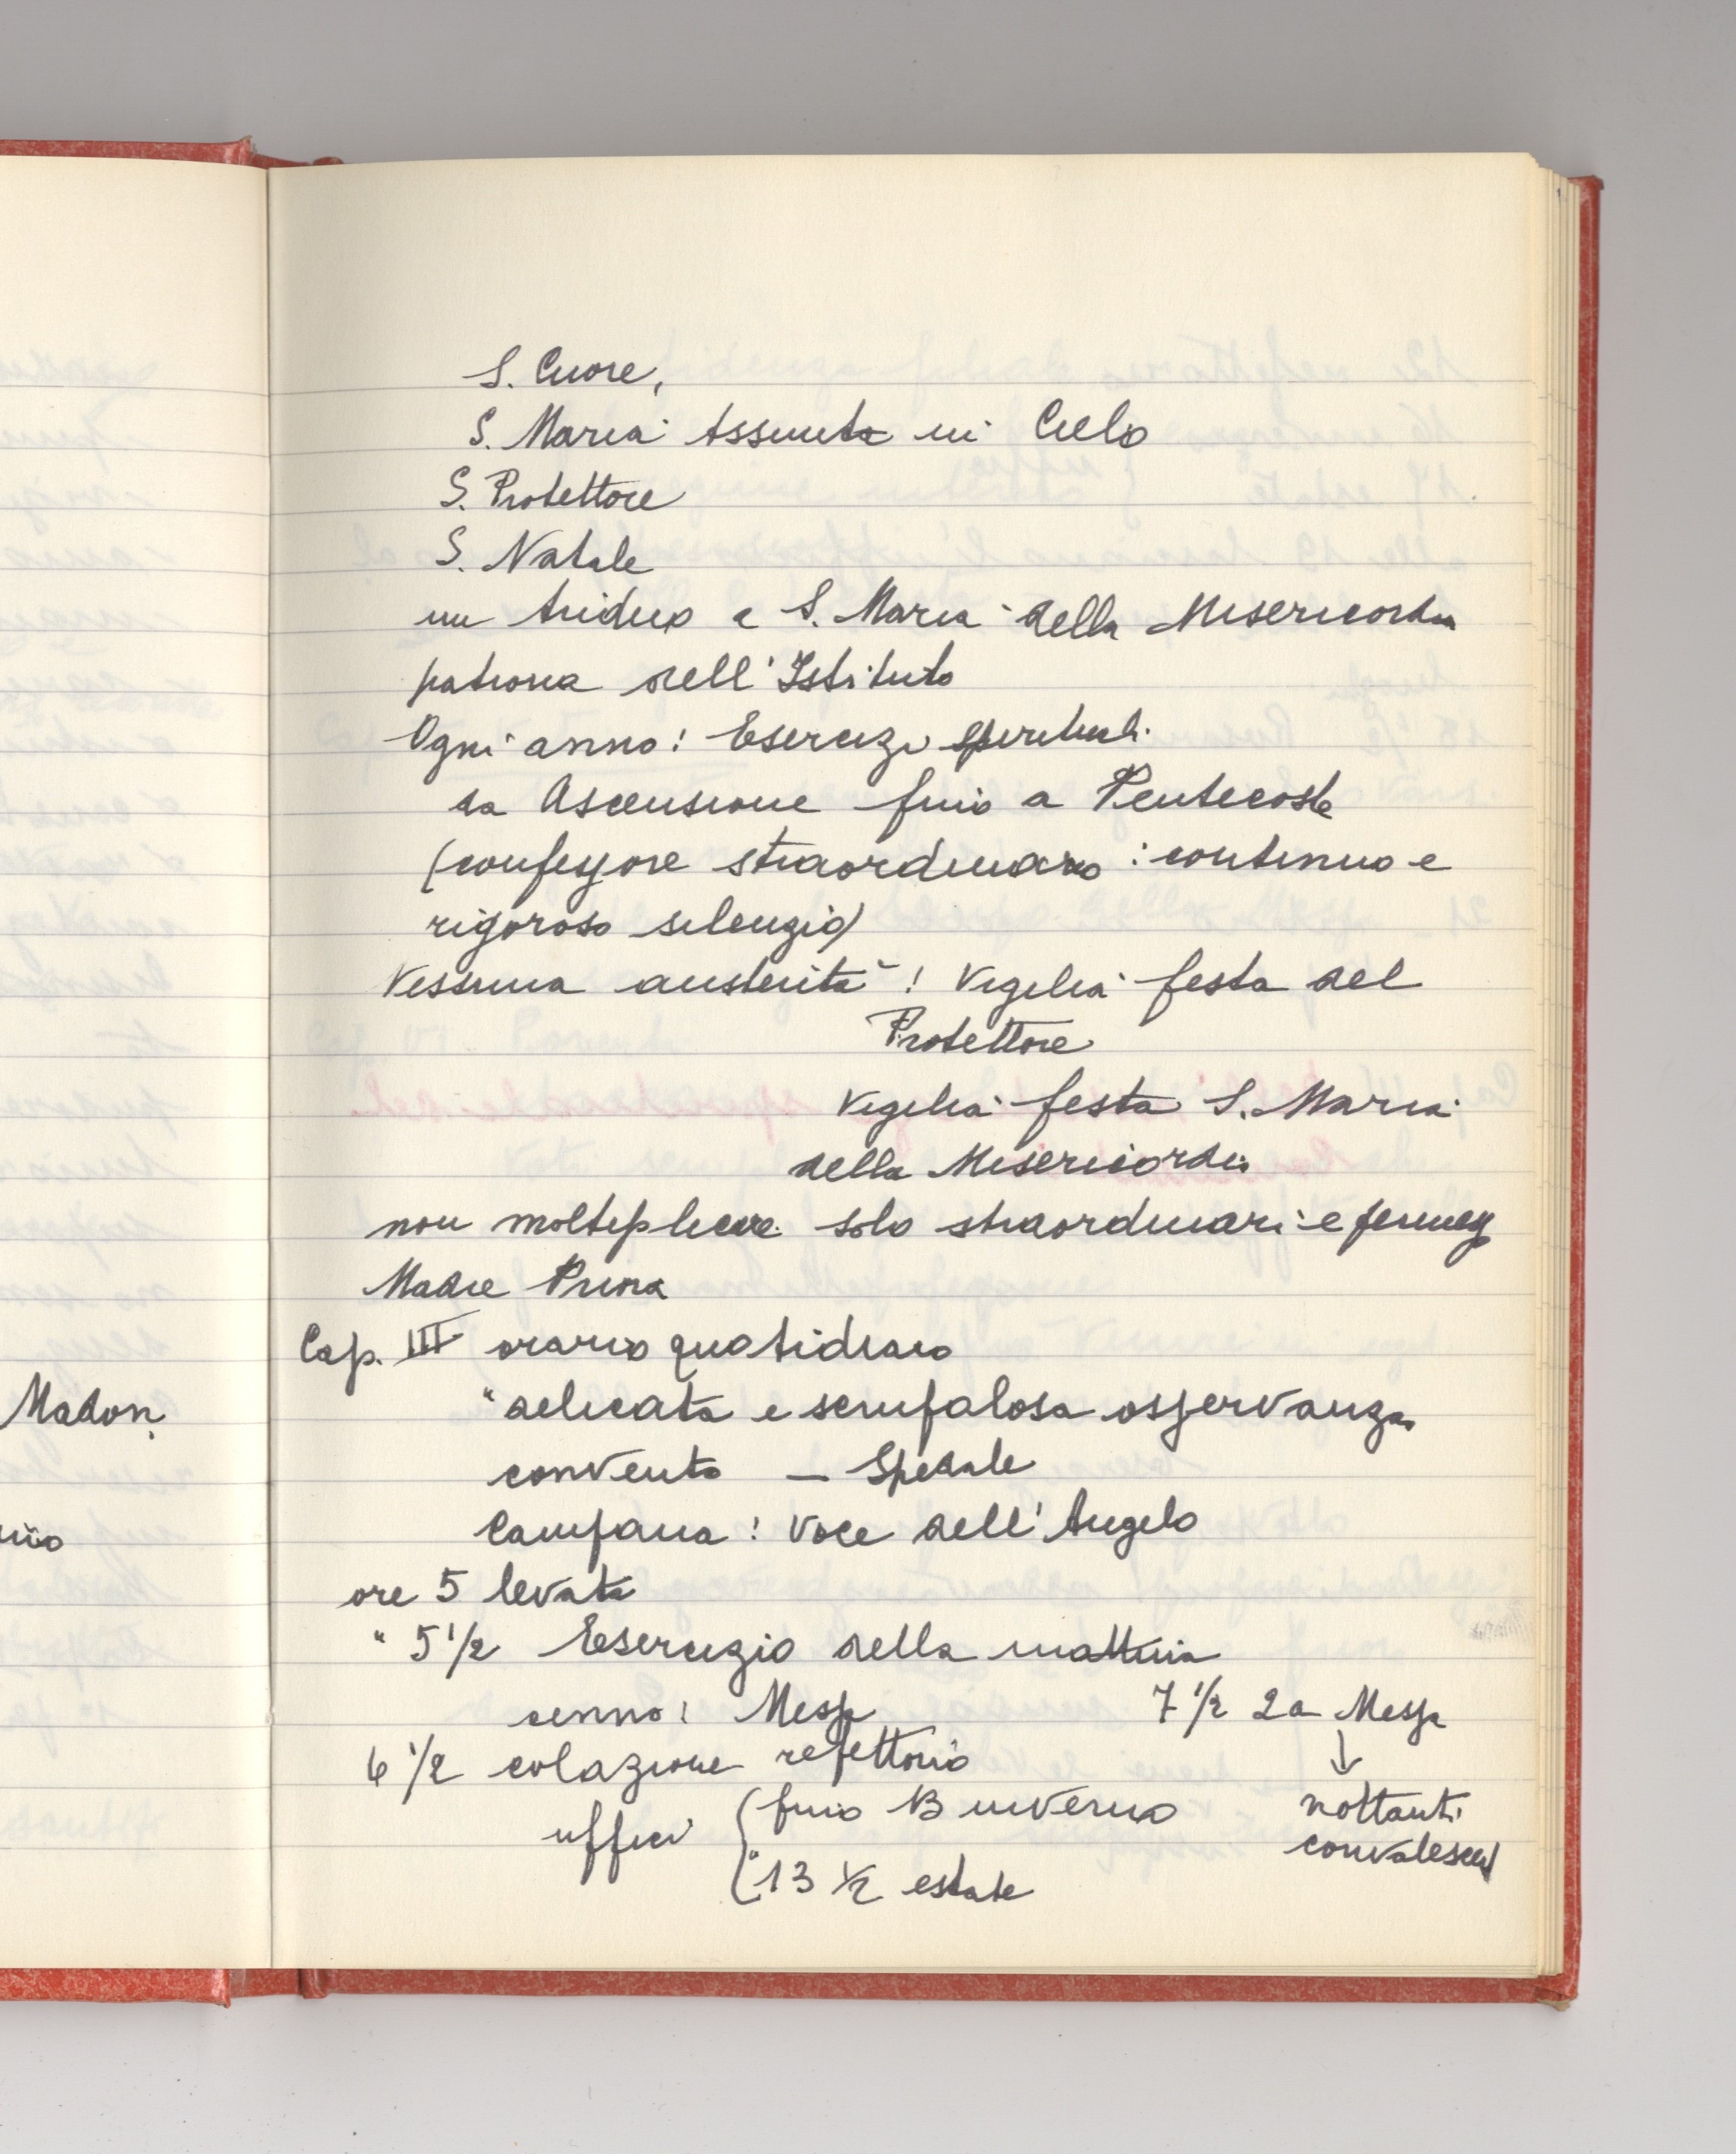 S. Cuore,
S. Maria Assunta in Cielo
S. Protettore
S. Natale
un triduo a S. Maria della Misericordia
patrona dell'Istituto
Ogni anno: Esercizi spirituali
da Ascensione fino a Pentecoste
(confessore straordinario: continuo e
rigoroso silenzio)
Nessuna austerità! Vigilia festa del
Protettore
Vigilia festa S. Maria
della Misericordia
non moltiplicare solo straordinari e
Madre Prima
Cap. III orario quotidiano
"delicata e scrupolosa osservanza
convento – Spedale
Campana: Voce dell'Angelo
ore 5 levata
" 5 1/2 Esercizio della mattina
cenno: Messa 7 1/2 2a Messa
↓
6 1/2 colazione refettorio
uffici { fino 13 inverno nottanti
" 13 1/2 estate convalescenti
Madon.